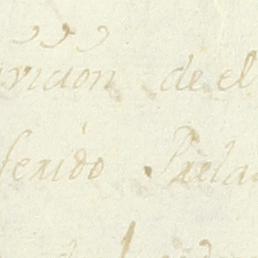 vicion de el
ferido Prela